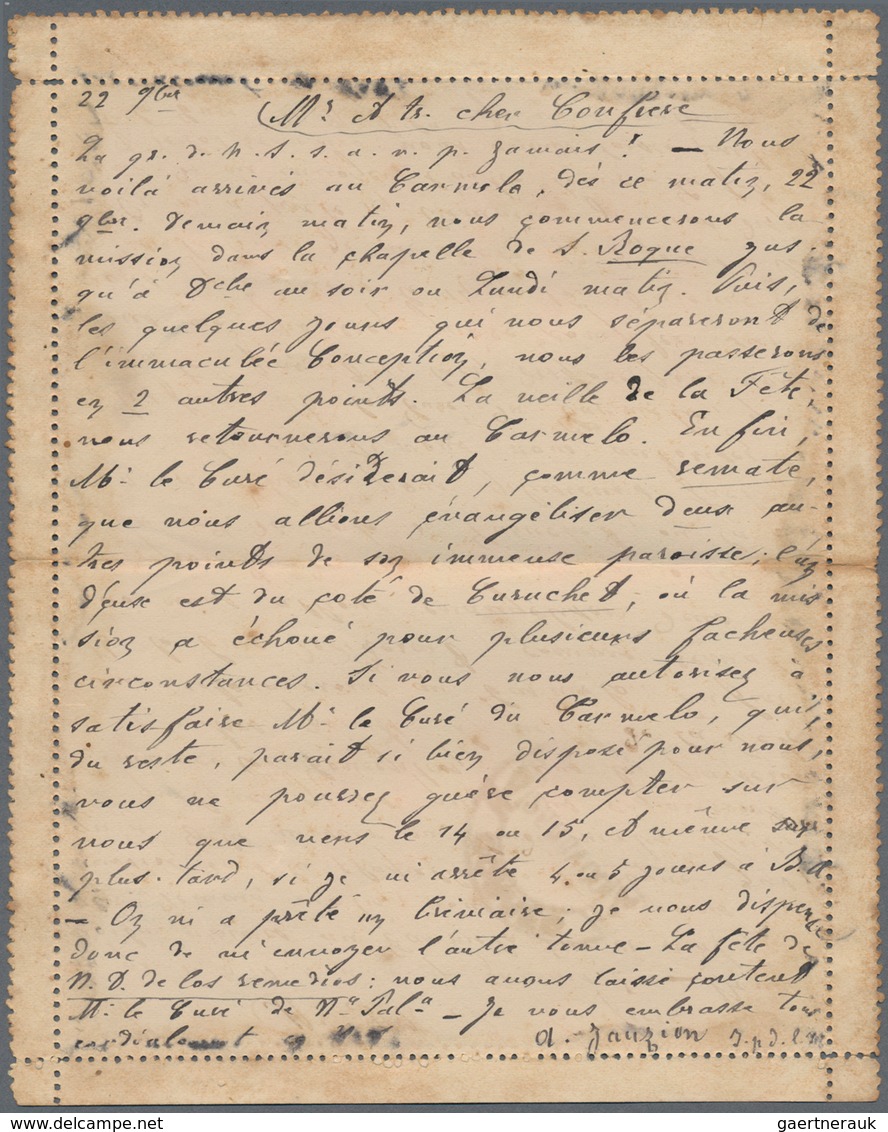 22 9bre
Mr & tr. cher Confrere
La gr. d. N. S. s. a. v. p. jamais ! — Nous
voilà arrivés au Carmelo, dès ce matin, 22
9bre. Demain matin, nous commencerons la
mission dans la chapelle de S. Roque jus-
qu'à Dche au soir ou Lundi matin. Puis,
les quelques jours qui nous sépareront de
l'immaculée Conception, nous les passerons
en 2 autres points. La veille de la Fête,
nous retournerons au Carmelo. Enfin,
Mr le Curé désirerait, comme remate,
que nous allions évangéliser deux au-
tres points de son immense paroisse; l'un
d'eux est du coté de Curuchet, où la mis
sion a échoué pour plusieurs facheuses
circonstances. Si vous nous autorisez à
satisfaire Mr le Curé du Carmelo, qui,
du reste, parait si bien disposé pour nous,
vous ne pourrez guère compter sur
nous que vers le 14 ou 15, et même
plus-tard, si je m'arrête 4 ou 5 jours à B. A.
— On m'a prêté un breviaire; je vous dispense
donc de m'envoyer l'autre tome — La fête de
N. D. de los remedios: nous avons laissé content
Mr le Curé de Na Pala — Je vous embrasse tous
cordialement en
A. Jauzion J. p. d. l. m
gaertnerauk